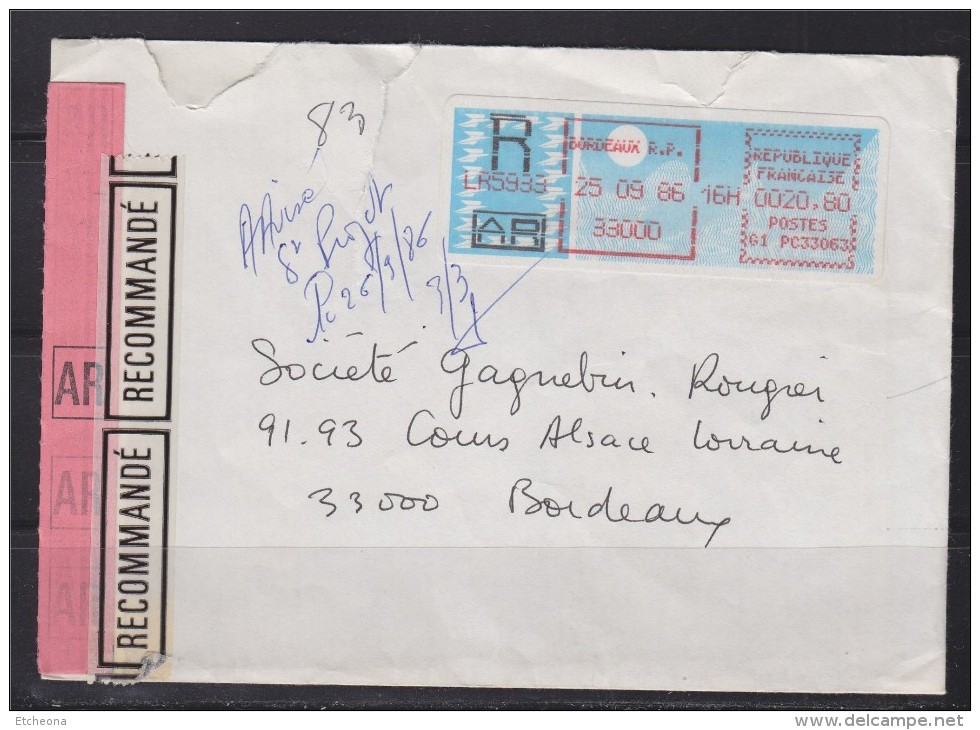 83
R
LR5933
AR
BORDEAUX R.P.
25 09 86 16H
33000
REPUBLIQUE
FRANCAISE
0020,80
POSTES
G1 PC33063
Avisé
26/9/86
Société Gagnebin. Rougier
91.93 Cours Alsace Lorraine
33000 Bordeaux
RECOMMANDÉ
RECOMMANDÉ
AR
AR
AR
Etcheona
delcampe.net